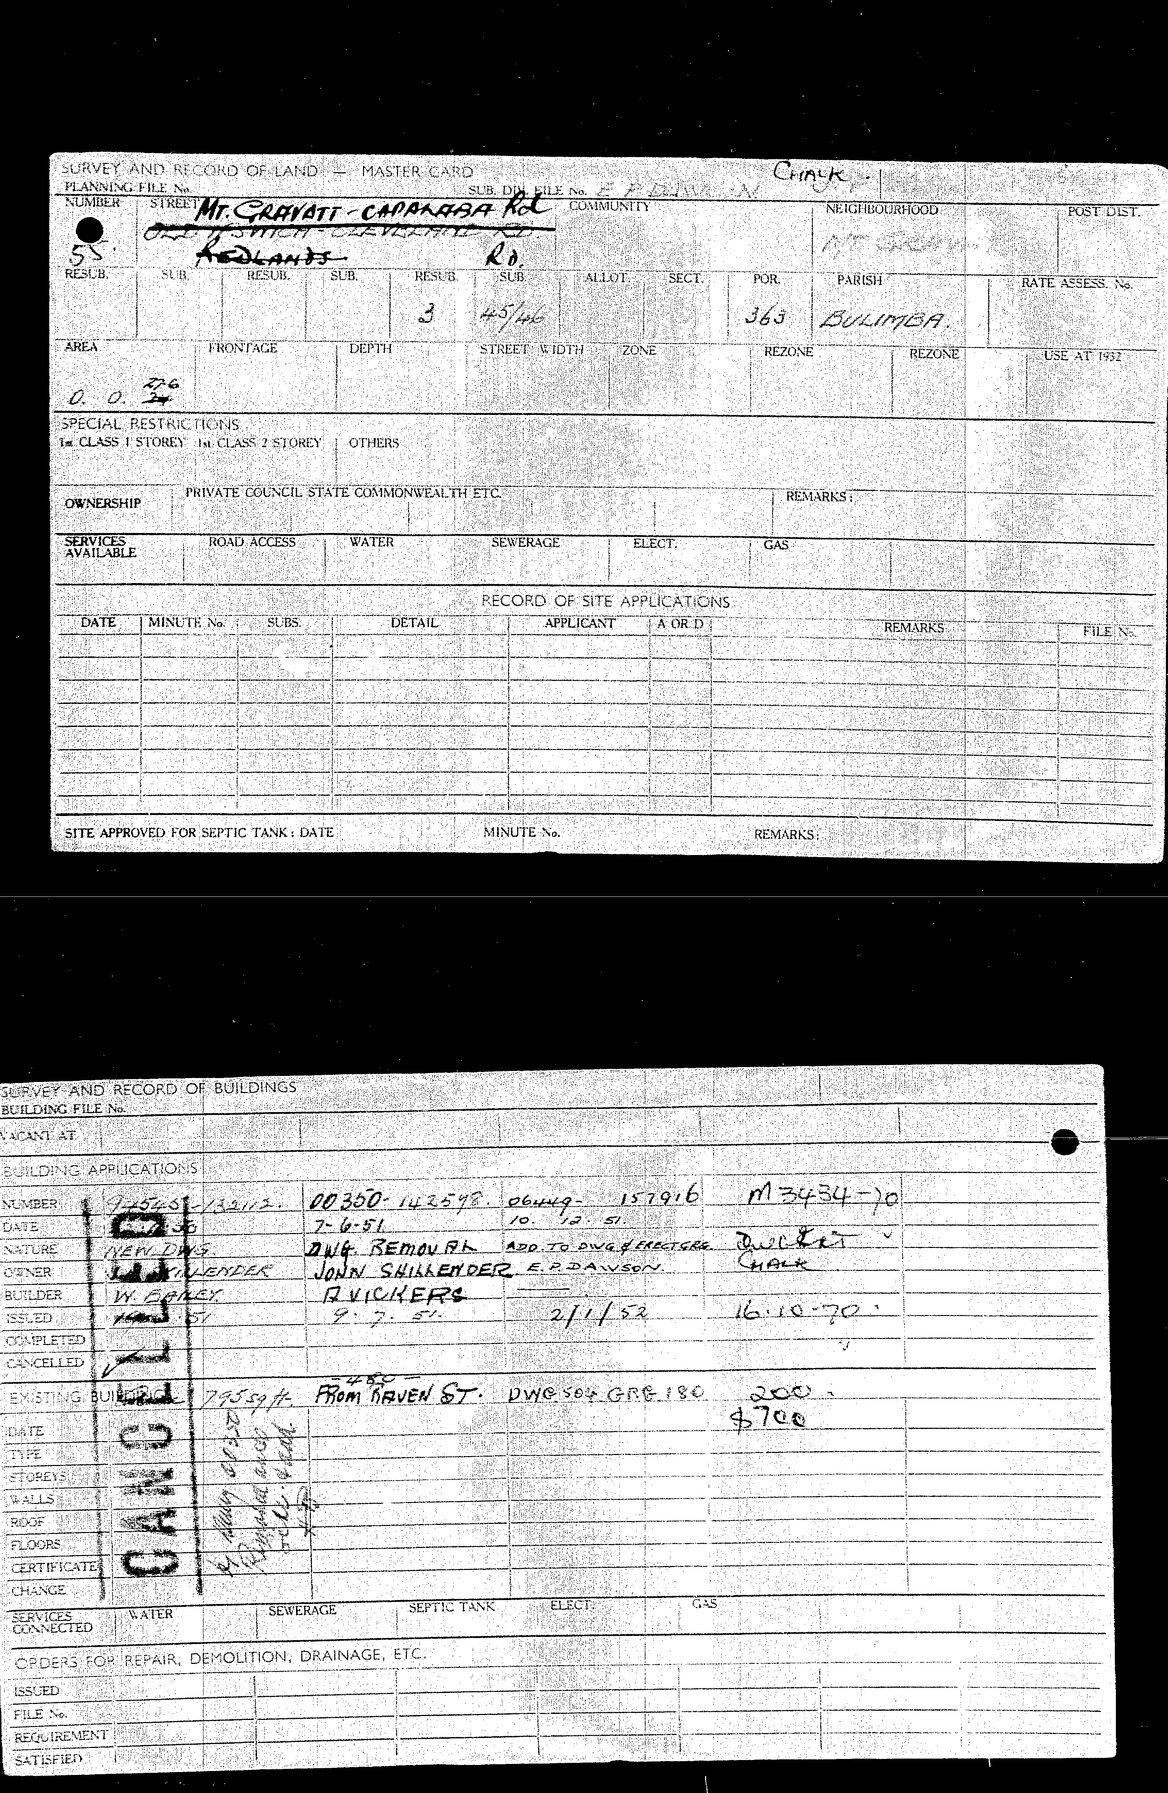 SURVEY AND RECORD OF LAND — MASTER CARD CHALK.
PLANNING FILE No. SUB. DIV. FILE No. E P DAWSON
NUMBER STREET MT. GRAVATT - CAPALABA Rd COMMUNITY NEIGHBOURHOOD POST DIST.
OLD IPSWICH - CLEVELAND RD MT GRAVATT
55 REDLANDS RD.
RESUB. SUB. RESUB. SUB. RESUB. SUB. ALLOT. SECT. POR. PARISH RATE ASSESS. No.
3 45/46 363 BULIMBA.
AREA FRONTAGE DEPTH STREET WIDTH ZONE REZONE REZONE USE AT 1952
27·6
0. 0. 24
SPECIAL RESTRICTIONS
1st CLASS 1 STOREY 1st CLASS 2 STOREY OTHERS
OWNERSHIP PRIVATE COUNCIL STATE COMMONWEALTH ETC. REMARKS:
SERVICES AVAILABLE ROAD ACCESS WATER SEWERAGE ELECT. GAS
RECORD OF SITE APPLICATIONS
DATE MINUTE No. SUBS. DETAIL APPLICANT A OR D REMARKS FILE No.
SITE APPROVED FOR SEPTIC TANK: DATE MINUTE No. REMARKS:
SURVEY AND RECORD OF BUILDINGS
BUILDING FILE No.
VACANT AT
BUILDING APPLICATIONS
NUMBER 00350- 142598. 06449- 157916 M3434-70
DATE 7-6-51 10. 12. 51.
NATURE NEW DWG. DWG. REMOVAL ADD. TO DWG & ERECT GRE
OWNER SHILLENDER JOHN SHILLENDER. E.P. DAWSON. CHALK
BUILDER W. R VICKERS ——
ISSUED 51 9. 7. 51. 2/1/52 16.10-70.
COMPLETED
CANCELLED
EXISTING BUILDING 795 sq ft. —480— FROM RAVEN ST. DWG 504 GRE 180 200
$700
DATE
TYPE
STOREYS
WALLS
ROOF
FLOORS
CERTIFICATE
CHANGE
CANCELLED
00350
SERVICES CONNECTED WATER SEWERAGE SEPTIC TANK ELECT. GAS
ORDERS FOR REPAIR, DEMOLITION, DRAINAGE, ETC.
ISSUED
FILE No.
REQUIREMENT
SATISFIED